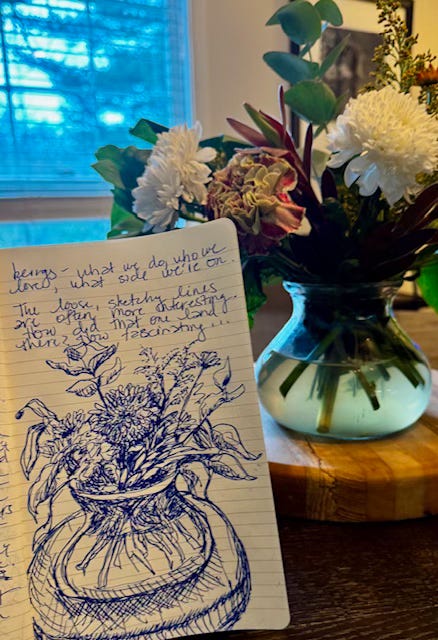 beings - what we do, who we
love, what side we're on.
The loose, sketchy lines
are often more interesting.
How did that one land
there? How fascinating...